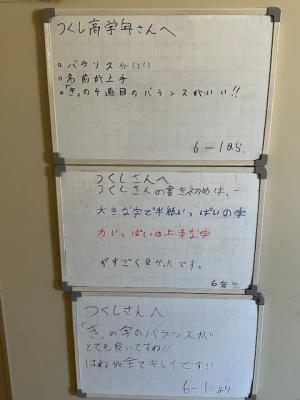 つくし高学年さんへ
○バランスがいい
○名前が上手
○「き」の4画目のバランスがいい!!
6-1から
つくしさんへ
つくしさんの書き初めは、
大きな字で半紙いっぱいの字
力いっぱいの上手な字
がすごく良かったです。
つくしさんへ
「き」の字のバランスが
とても良いですね!!
はねが全てキレイです!!
6-1より